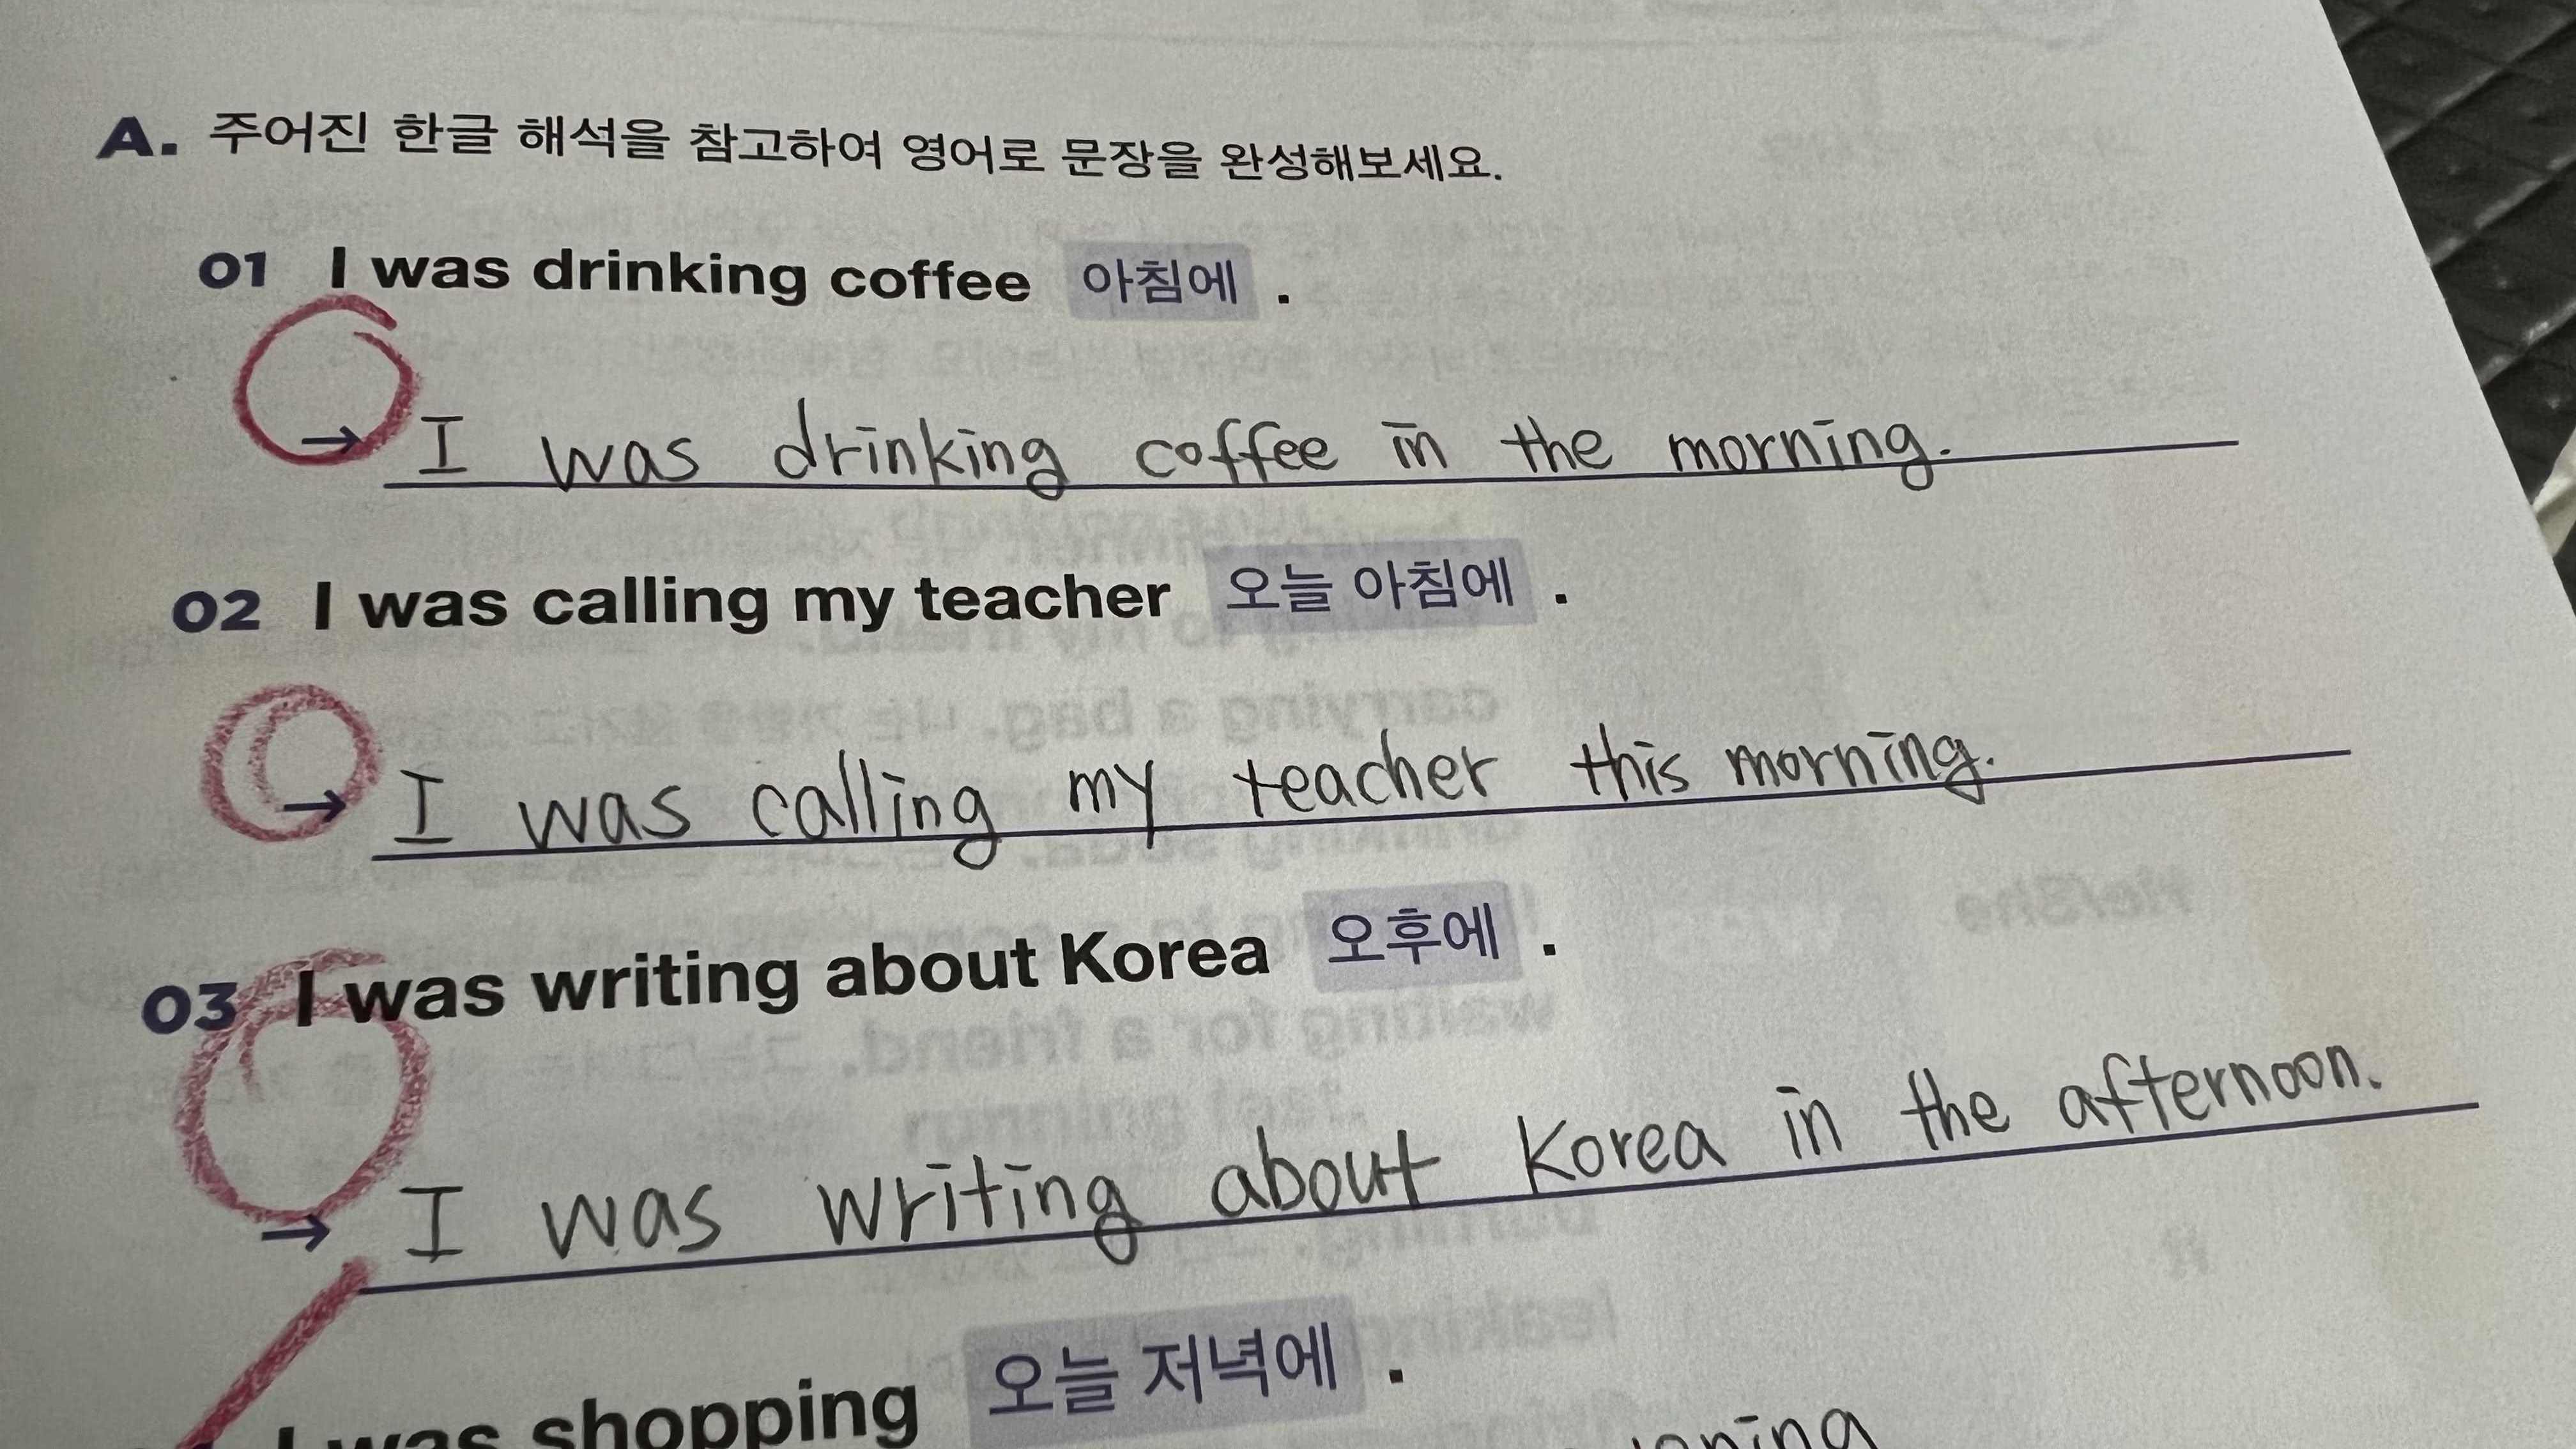 A. 주어진 한글 해석을 참고하여 영어로 문장을 완성해보세요.
01 I was drinking coffee 아침에 .
→ I was drinking coffee in the morning.
02 I was calling my teacher 오늘 아침에 .
→ I was calling my teacher this morning.
03 I was writing about Korea 오후에 .
→ I was writing about Korea in the afternoon.
I was shopping 오늘 저녁에 .